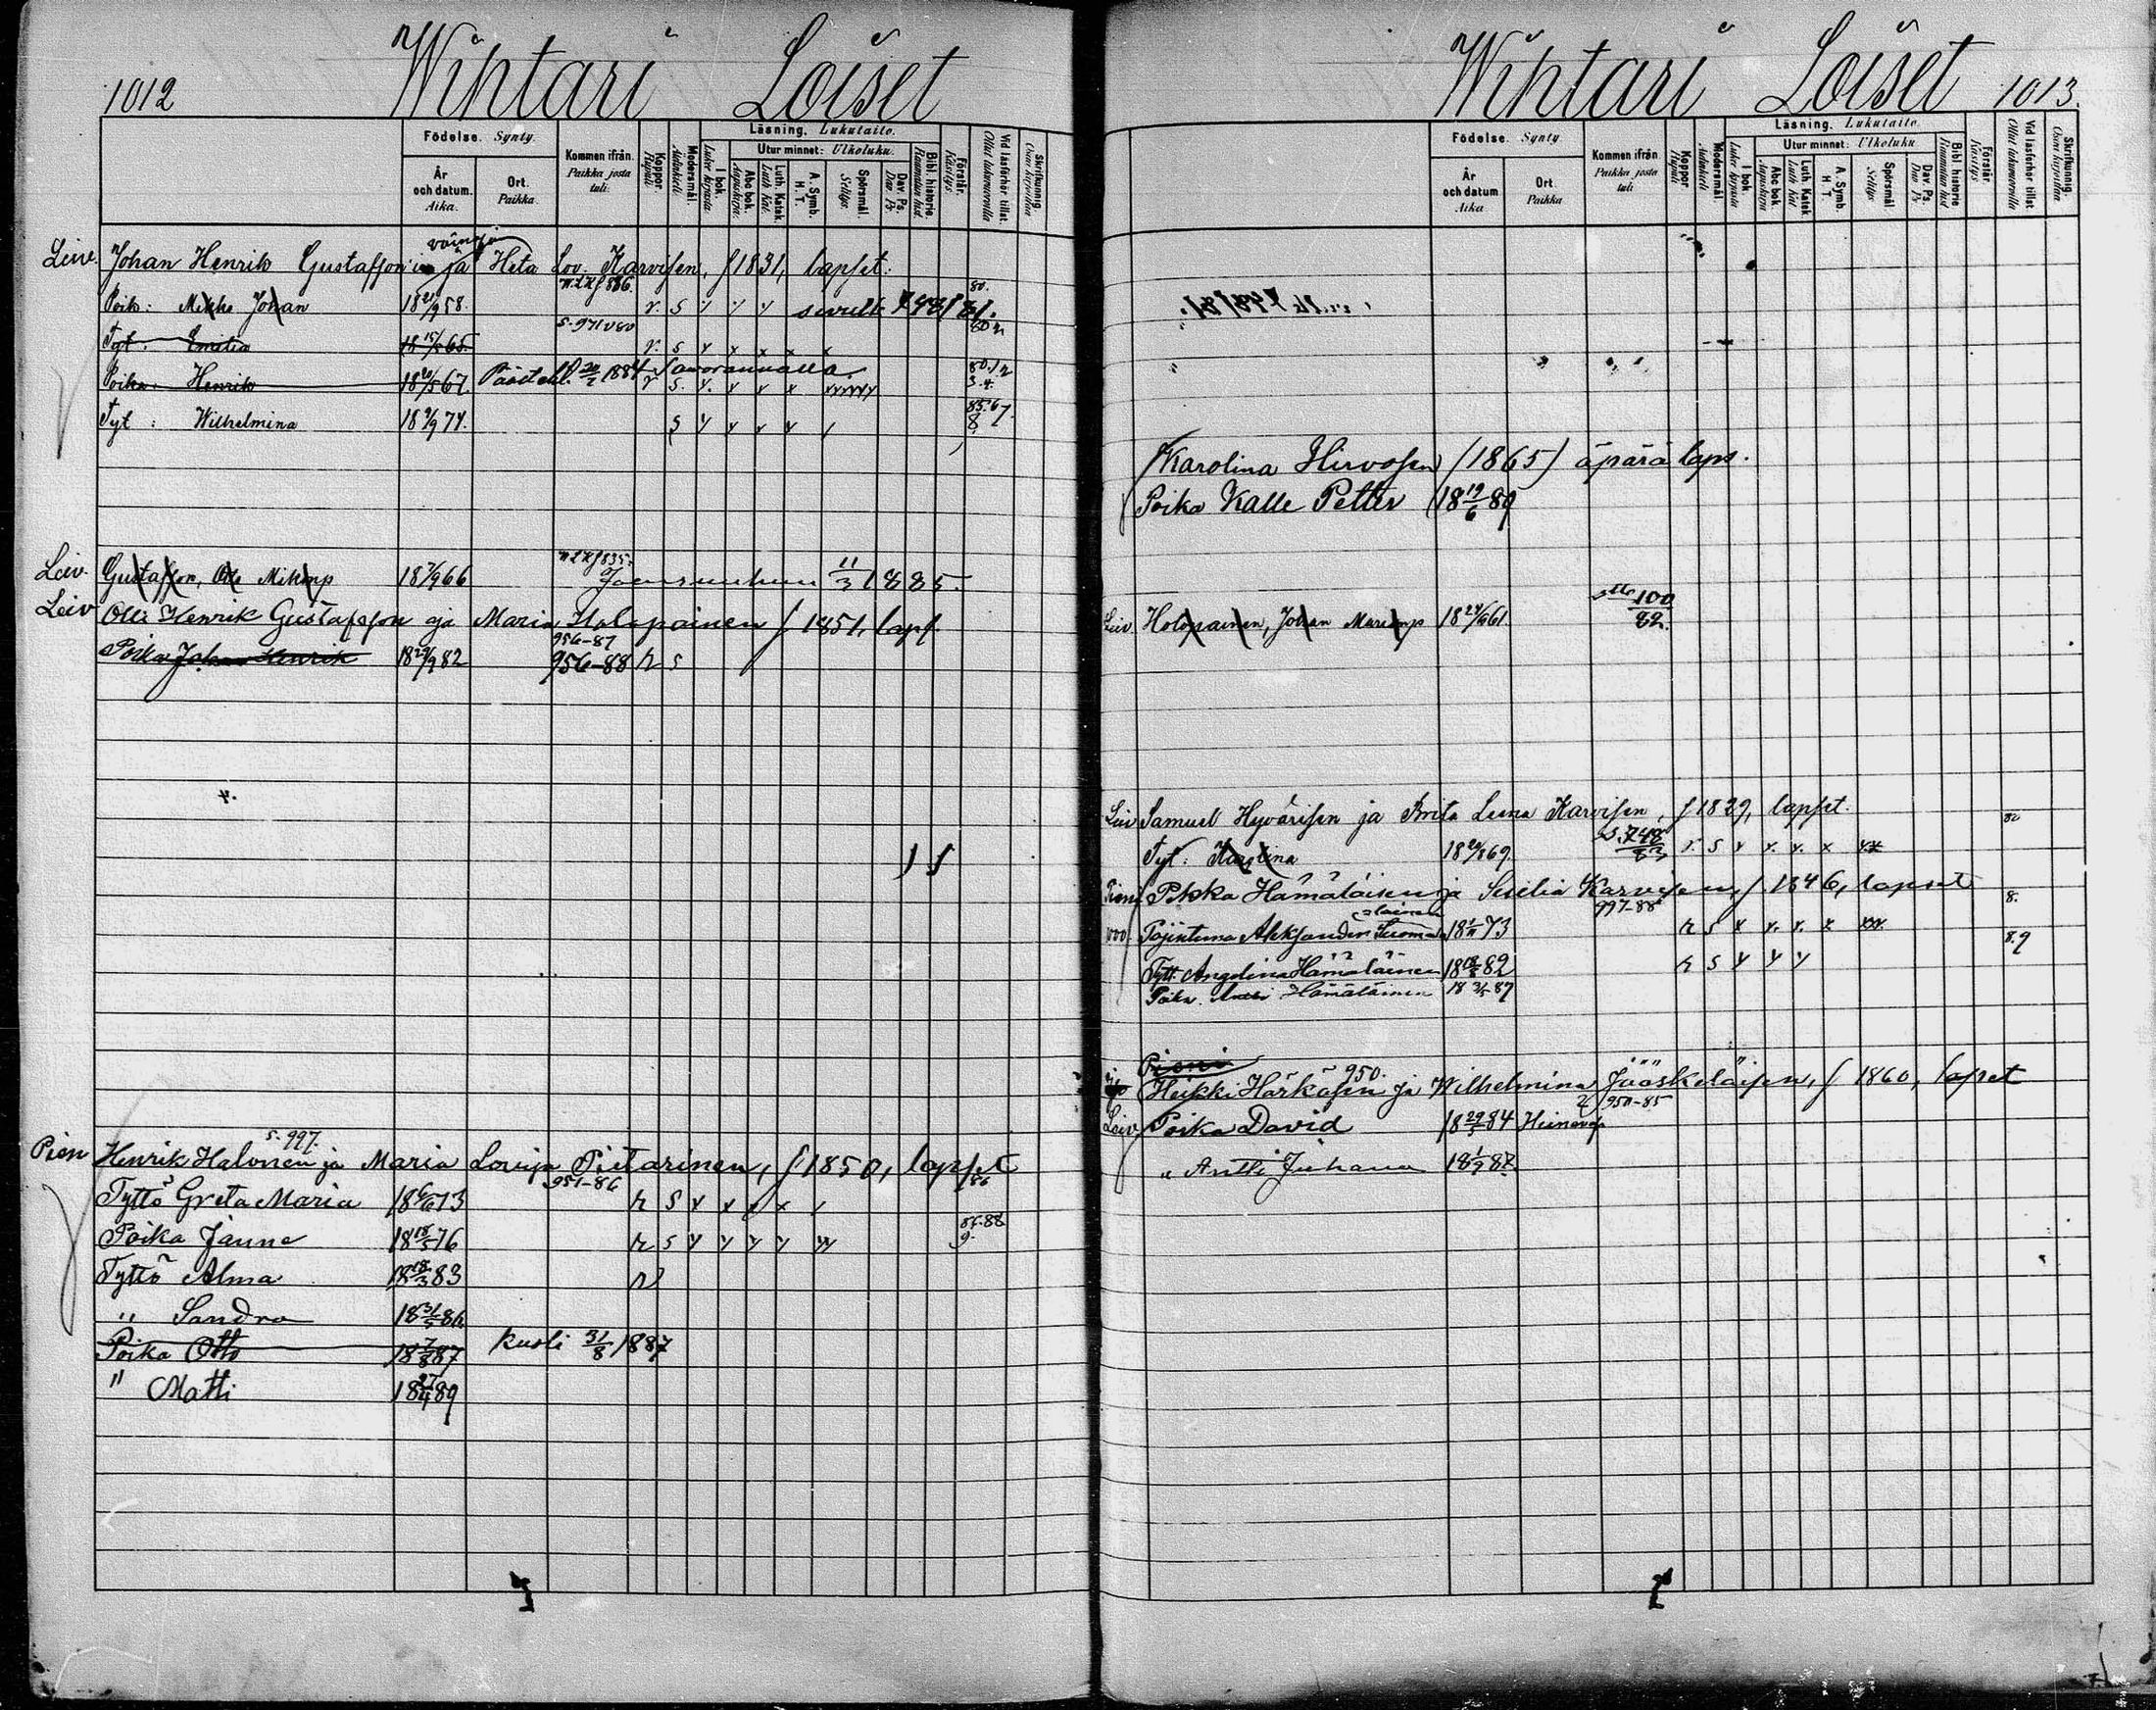 1012 Wihtari Loiset
Födelse. Synty.
År och datum. Aika.
Ort. Paikka.
Kommen ifrån. Paikka josta tuli.
Koppor. Rupuli
Modersmål. Äidinkieli
Läsning. Lukutaito.
I bok. Lukee kirjasta
Utur minnet: Ulkoluku.
Abc bok. Aapiskirja.
Luth. Katek. Luth. Kat.
A. Symb. H. T.
Spörsmål. Selitys.
Dav. Ps. Dav. Ps.
Bibl. historie. Raamatun hist.
Förstår. Käsitys.
Vid läsförhör tillst. Ollut lukuvuorolla
Skrifkunnig. Osaa kirjoittaa
Leiv. Johan Henrik Gustafsson ja Heta Lov. Karvisen, f 1831, lapset:
Poik: Mikko Johan 18 21/9 58. r. s sivult 748/81.
Tyt: Emilia 18 15/ 65. s. 971 v 80 r. s
Poika: Henrik 18 20/5 67. Pääst. 1884 r s.
Tyt: Wilhelmina 18 9/9 74. s
Leiv. Gustafsson, Mik 18 7/9 66 Joensuuhun 11/3 1885.
Leiv Olli Henrik Gustafsson ja Maria Holopainen f 1851, laps.
956-87
Poika Johan Henrik 18 29/9 82 956-88 r s
s. 997.
Pien Henrik Halonen ja Maria Lovisa Pietarinen, f 1850, lapset
951-86
Tyttö Greta Maria 18 6/6 73 r s
Poika Janne 18 18/5 76 r s
Tyttö Alma 18 18/3 83 r
" Sandra 18 31/5 86
Poika Otto 18 7/8 87 kuoli 31/8 1887
" Matti 18 27/4 89
Wihtari Loiset 1013.
Födelse. Synty
År och datum Aika
Ort. Paikka
Kommen ifrån Paikka josta tuli
Koppor. Rupuli
Modersmål. Äidinkieli
Läsning. Lukutaito
I bok. Lukee kirjasta
Utur minnet: Ulkoluku
Abc bok. Aapiskirja
Luth Katek Luth Kat.
A. Symb. H T
Spörsmål Selitys
Dav. Ps. Dav Ps
Bibl historie Raamatun hist
Förstår. Käsitys
Vid läsförhör tillst Ollut lukuvuorolla
Skrifkunnig. Osaa kirjoittaa
Karolina Hirvosen (1865) äpärä laps.
Poika Kalle Petter 18 19/6 89
Leiv. Holopainen, Johan 18 24/9 61. 100/82.
Leiv Samuel Hyvärisen ja Brita Leena Karvisen, f 1829, lapset.
Tyt: Karolina 18 20/8 69. s. 748/82 r. s
Pieni Pekka Hämäläisen ja Sesilia Karvisen, f. 1846, lapset
997-88
Pojintima Aleksander Suomalainen 18 1/11 73 r s
Tytt. Angelina Hämäläinen 18 82 r s
Poika. Antti Hämäläinen 18 3/5 87
Pieni
950.
Heikki Härkösen ja Wilhelmina Jääskeläisen, f 1860, lapset
950-85
Leiv Poika David 18 29/5 84
" Antti Juhana 18 1/9 87